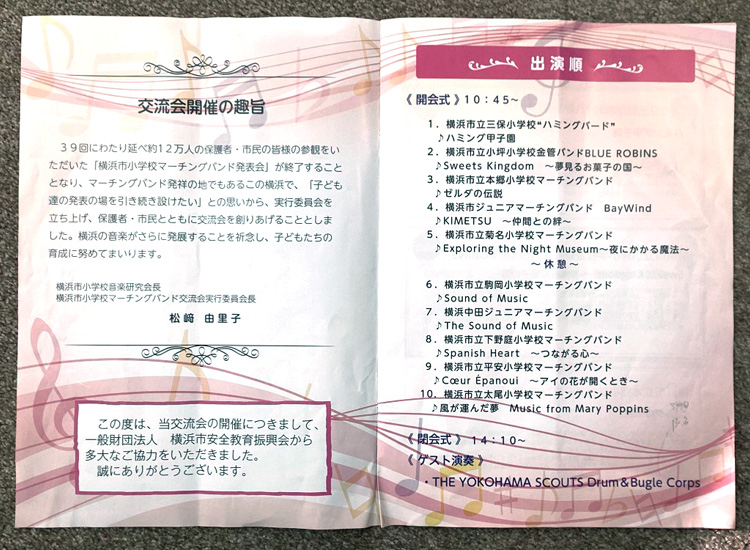 交流会開催の趣旨
39回にわたり延べ約12万人の保護者・市民の皆様の参観をい
ただいた「横浜市小学校マーチングバンド発表会」が終了すること
となり、マーチングバンド発祥の地でもあるこの横浜で、「子ども
達の発表の場を引き続き設けたい」との思いから、実行委員会を
立ち上げ、保護者・市民とともに交流会を創りあげることとしま
した。横浜の音楽がさらに発展することを祈念し、子どもたちの
育成に努めてまいります。
横浜市小学校音楽研究会長
横浜市小学校マーチングバンド交流会実行委員会長
松﨑 由里子
この度は、当交流会の開催につきまして、
一般財団法人 横浜市安全教育振興会から
多大なご協力をいただきました。
誠にありがとうございます。
出演順
《 開会式 》10:45~
1. 横浜市立三保小学校"ハミングバード"
♪ハミング甲子園
2. 横浜市立小坪小学校金管バンドBLUE ROBINS
♪Sweets Kingdom ～夢見るお菓子の国～
3. 横浜市立本郷小学校マーチングバンド
♪ゼルダの伝説
4. 横浜市ジュニアマーチングバンド BayWind
♪KIMETSU ～仲間との絆～
5. 横浜市立菊名小学校マーチングバンド
♪Exploring the Night Museum～夜にかかる魔法～
～ 休 憩 ～
6. 横浜市立駒岡小学校マーチングバンド
♪Sound of Music
7. 横浜中田ジュニアマーチングバンド
♪The Sound of Music
8. 横浜市立下野庭小学校マーチングバンド
♪Spanish Heart ～つながる心～
9. 横浜市立平安小学校マーチングバンド
♪Cœur Épanoui ～アイの花が開くとき～
10. 横浜市立太尾小学校マーチングバンド
♪風が運んだ夢 Music from Mary Poppins
《 閉会式 》14:10~
《 ゲスト演奏 》
・THE YOKOHAMA SCOUTS Drum＆Bugle Corps